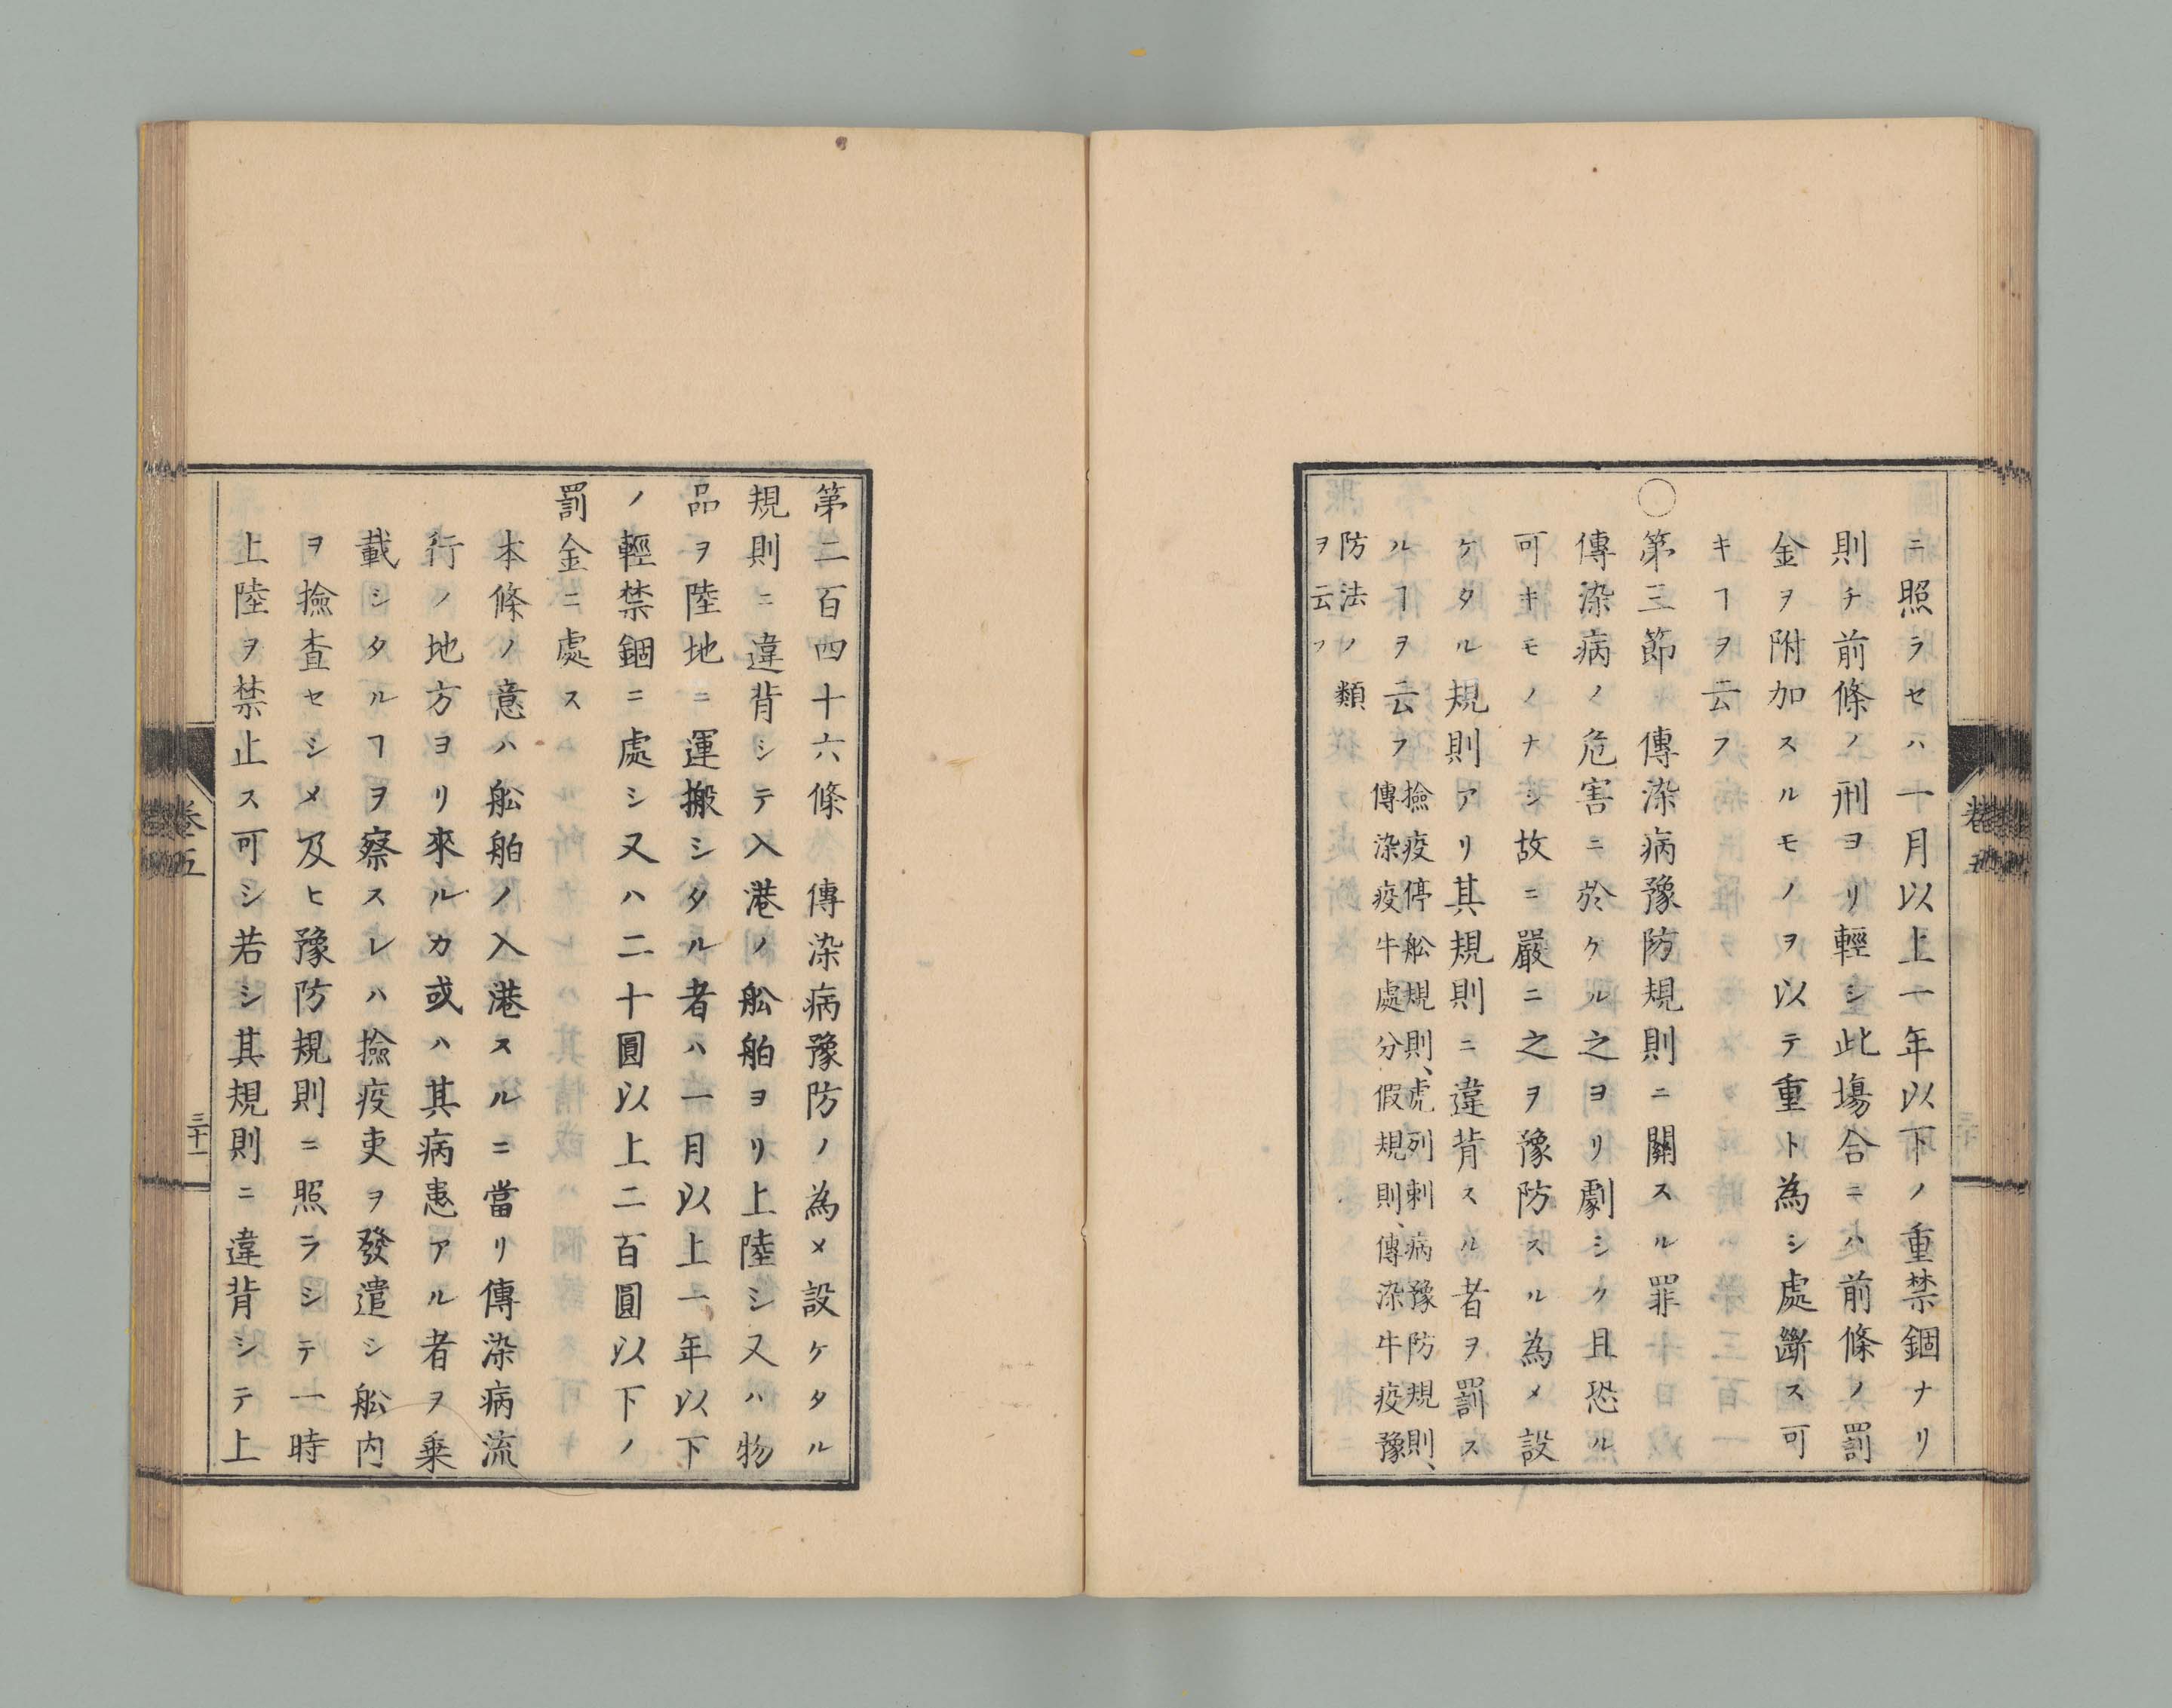 ニ照ラセハ一十月以上一年以下ノ重禁錮ナリ
則チ前條ノ刑ヨリ輕シ此塲合ニハ前條ノ罰
金ヲ附加スルモノヲ以テ重ト為シ處斷ス可
キヿヲ云フ
○第三節 傳染病豫防規則ニ關スル罪
傳染病ノ危害ニ於ケル之ヨリ劇シク且恐ル
可キモノナシ故ニ嚴ニ之ヲ豫防スル為メ設
ケタル規則アリ其規則ニ違背スル者ヲ罰ス
ルヿヲ云フ
撿疫停舩規則、虎列剌病豫防規則、
傳染疫牛處分假規則、傳染牛疫豫
防法ノ類
ヲ云フ
卷五
第二百四十六條 傳染病豫防ノ為メ設ケタル
規則ニ違背シテ入港ノ舩舶ヨリ上陸シ又ハ物
品ヲ陸地ニ運搬シタル者ハ一月以上一年以下
ノ輕禁錮ニ處シ又ハ二十圓以上二百圓以下ノ
罰金ニ處ス
本條ノ意ハ舩舶ノ入港スルニ當リ傳染病流
行ノ地方ヨリ來ルカ或ハ其病患アル者ヲ乗
載シタルヿヲ察スレハ撿疫吏ヲ發遣シ舩内
ヲ撿査セシメ及ヒ豫防規則ニ照ラシテ一時
上陸ヲ禁止ス可シ若シ其規則ニ違背シテ上
卷五
三十一